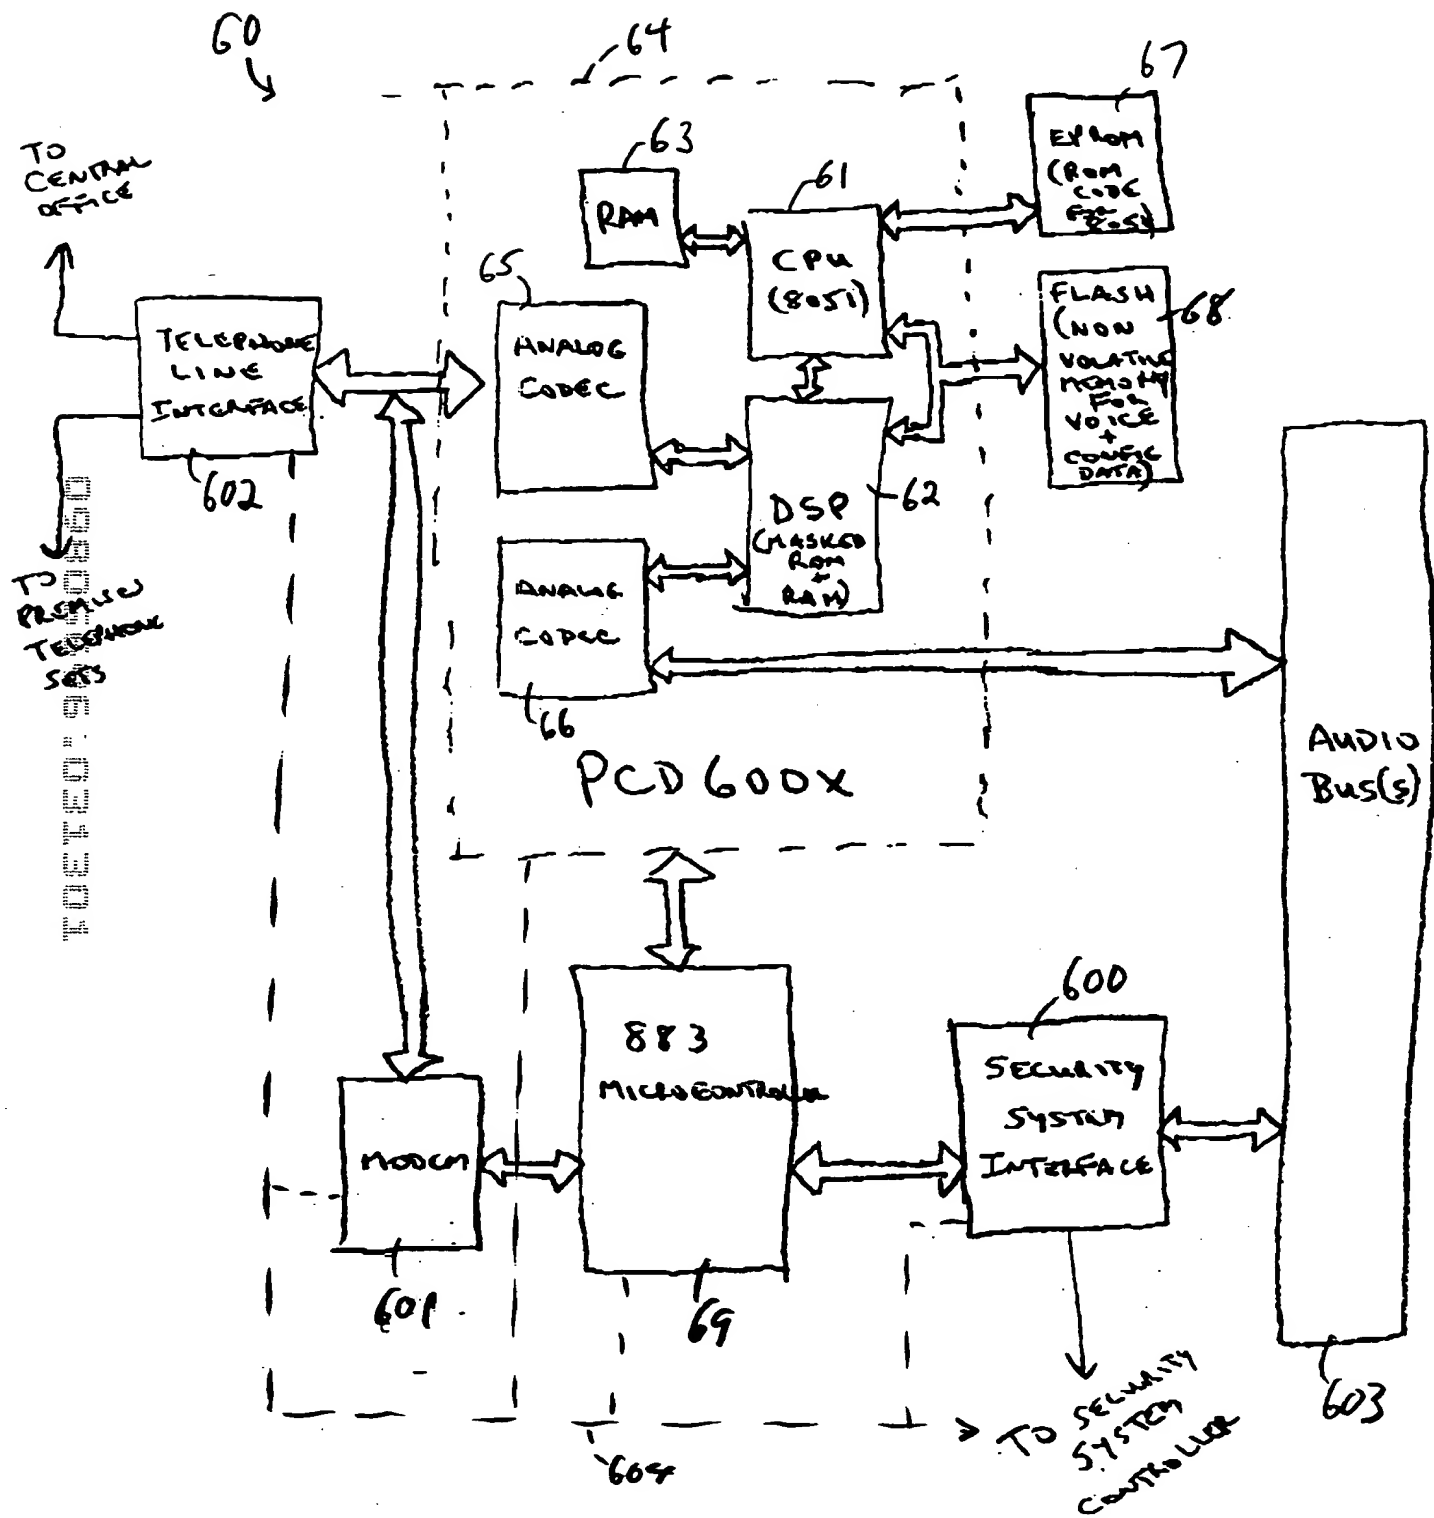 60
64
67
TO
CENTRAL
OFFICE
63
RAM
61
CPU
(8051)
EPROM
(ROM
CODE
FOR
8051)
65
ANALOG
CODEC
TELEPHONE
LINE
INTERFACE
602
FLASH
(NON
VOLATILE
MEMORY
FOR
VOICE
+
CONFIG
DATA)
68
62
DSP
(MASKED
ROM
+
RAM)
TO
PREMISES
TELEPHONE
SETS
ANALOG
CODEC
66
PCD600X
AUDIO
BUS(S)
883
MICROCONTROLLER
600
SECURITY
SYSTEM
INTERFACE
MODEM
601
69
603
604
TO SECURITY
SYSTEM
CONTROLLER